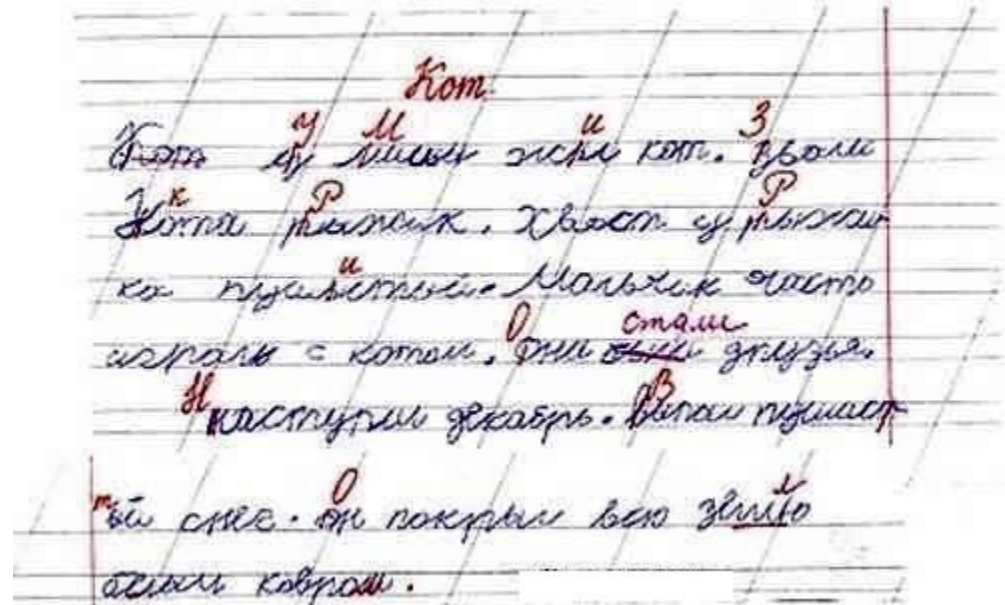 Кот
Кот у миши жил кот. звали
Кота рыжик. Хвост у рыжи
ка пушистой. Мальчик часто
играль с котом. они стали друзья.
наступил декабрь. выпал пушист
ый снег. он покрыл всю землю
белым ковром.